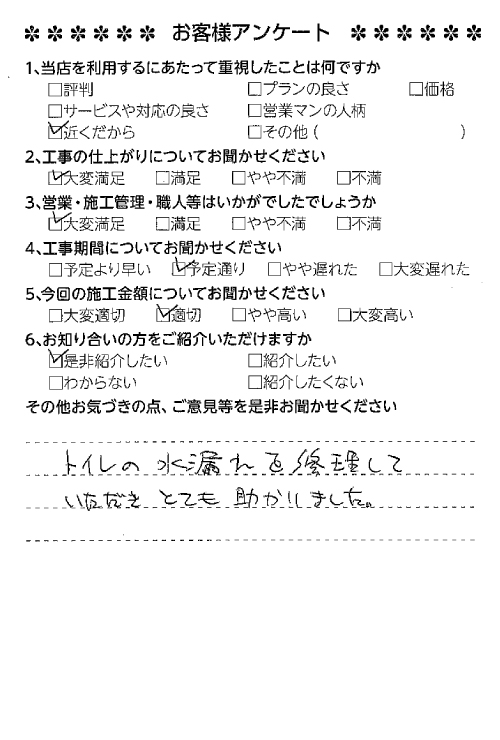 ✽✽✽✽✽✽ お客様アンケート ✽✽✽✽✽✽
1、当店を利用するにあたって重視したことは何ですか
□評判 □プランの良さ □価格
□サービスや対応の良さ □営業マンの人柄
☑近くだから □その他（ ）
2、工事の仕上がりについてお聞かせください
☑大変満足 □満足 □やや不満 □不満
3、営業・施工管理・職人等はいかがでしたでしょうか
☑大変満足 □満足 □やや不満 □不満
4、工事期間についてお聞かせください
□予定より早い ☑予定通り □やや遅れた □大変遅れた
5、今回の施工金額についてお聞かせください
□大変適切 ☑適切 □やや高い □大変高い
6、お知り合いの方をご紹介いただけますか
☑是非紹介したい □紹介したい
□わからない □紹介したくない
その他お気づきの点、ご意見等を是非お聞かせください
トイレの水漏れを修理して
いただきとても助かりました。